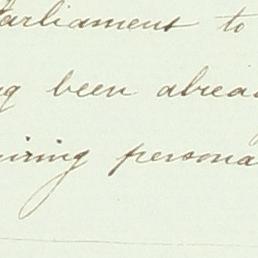 Parliament to
ng been alrea
uiring persona